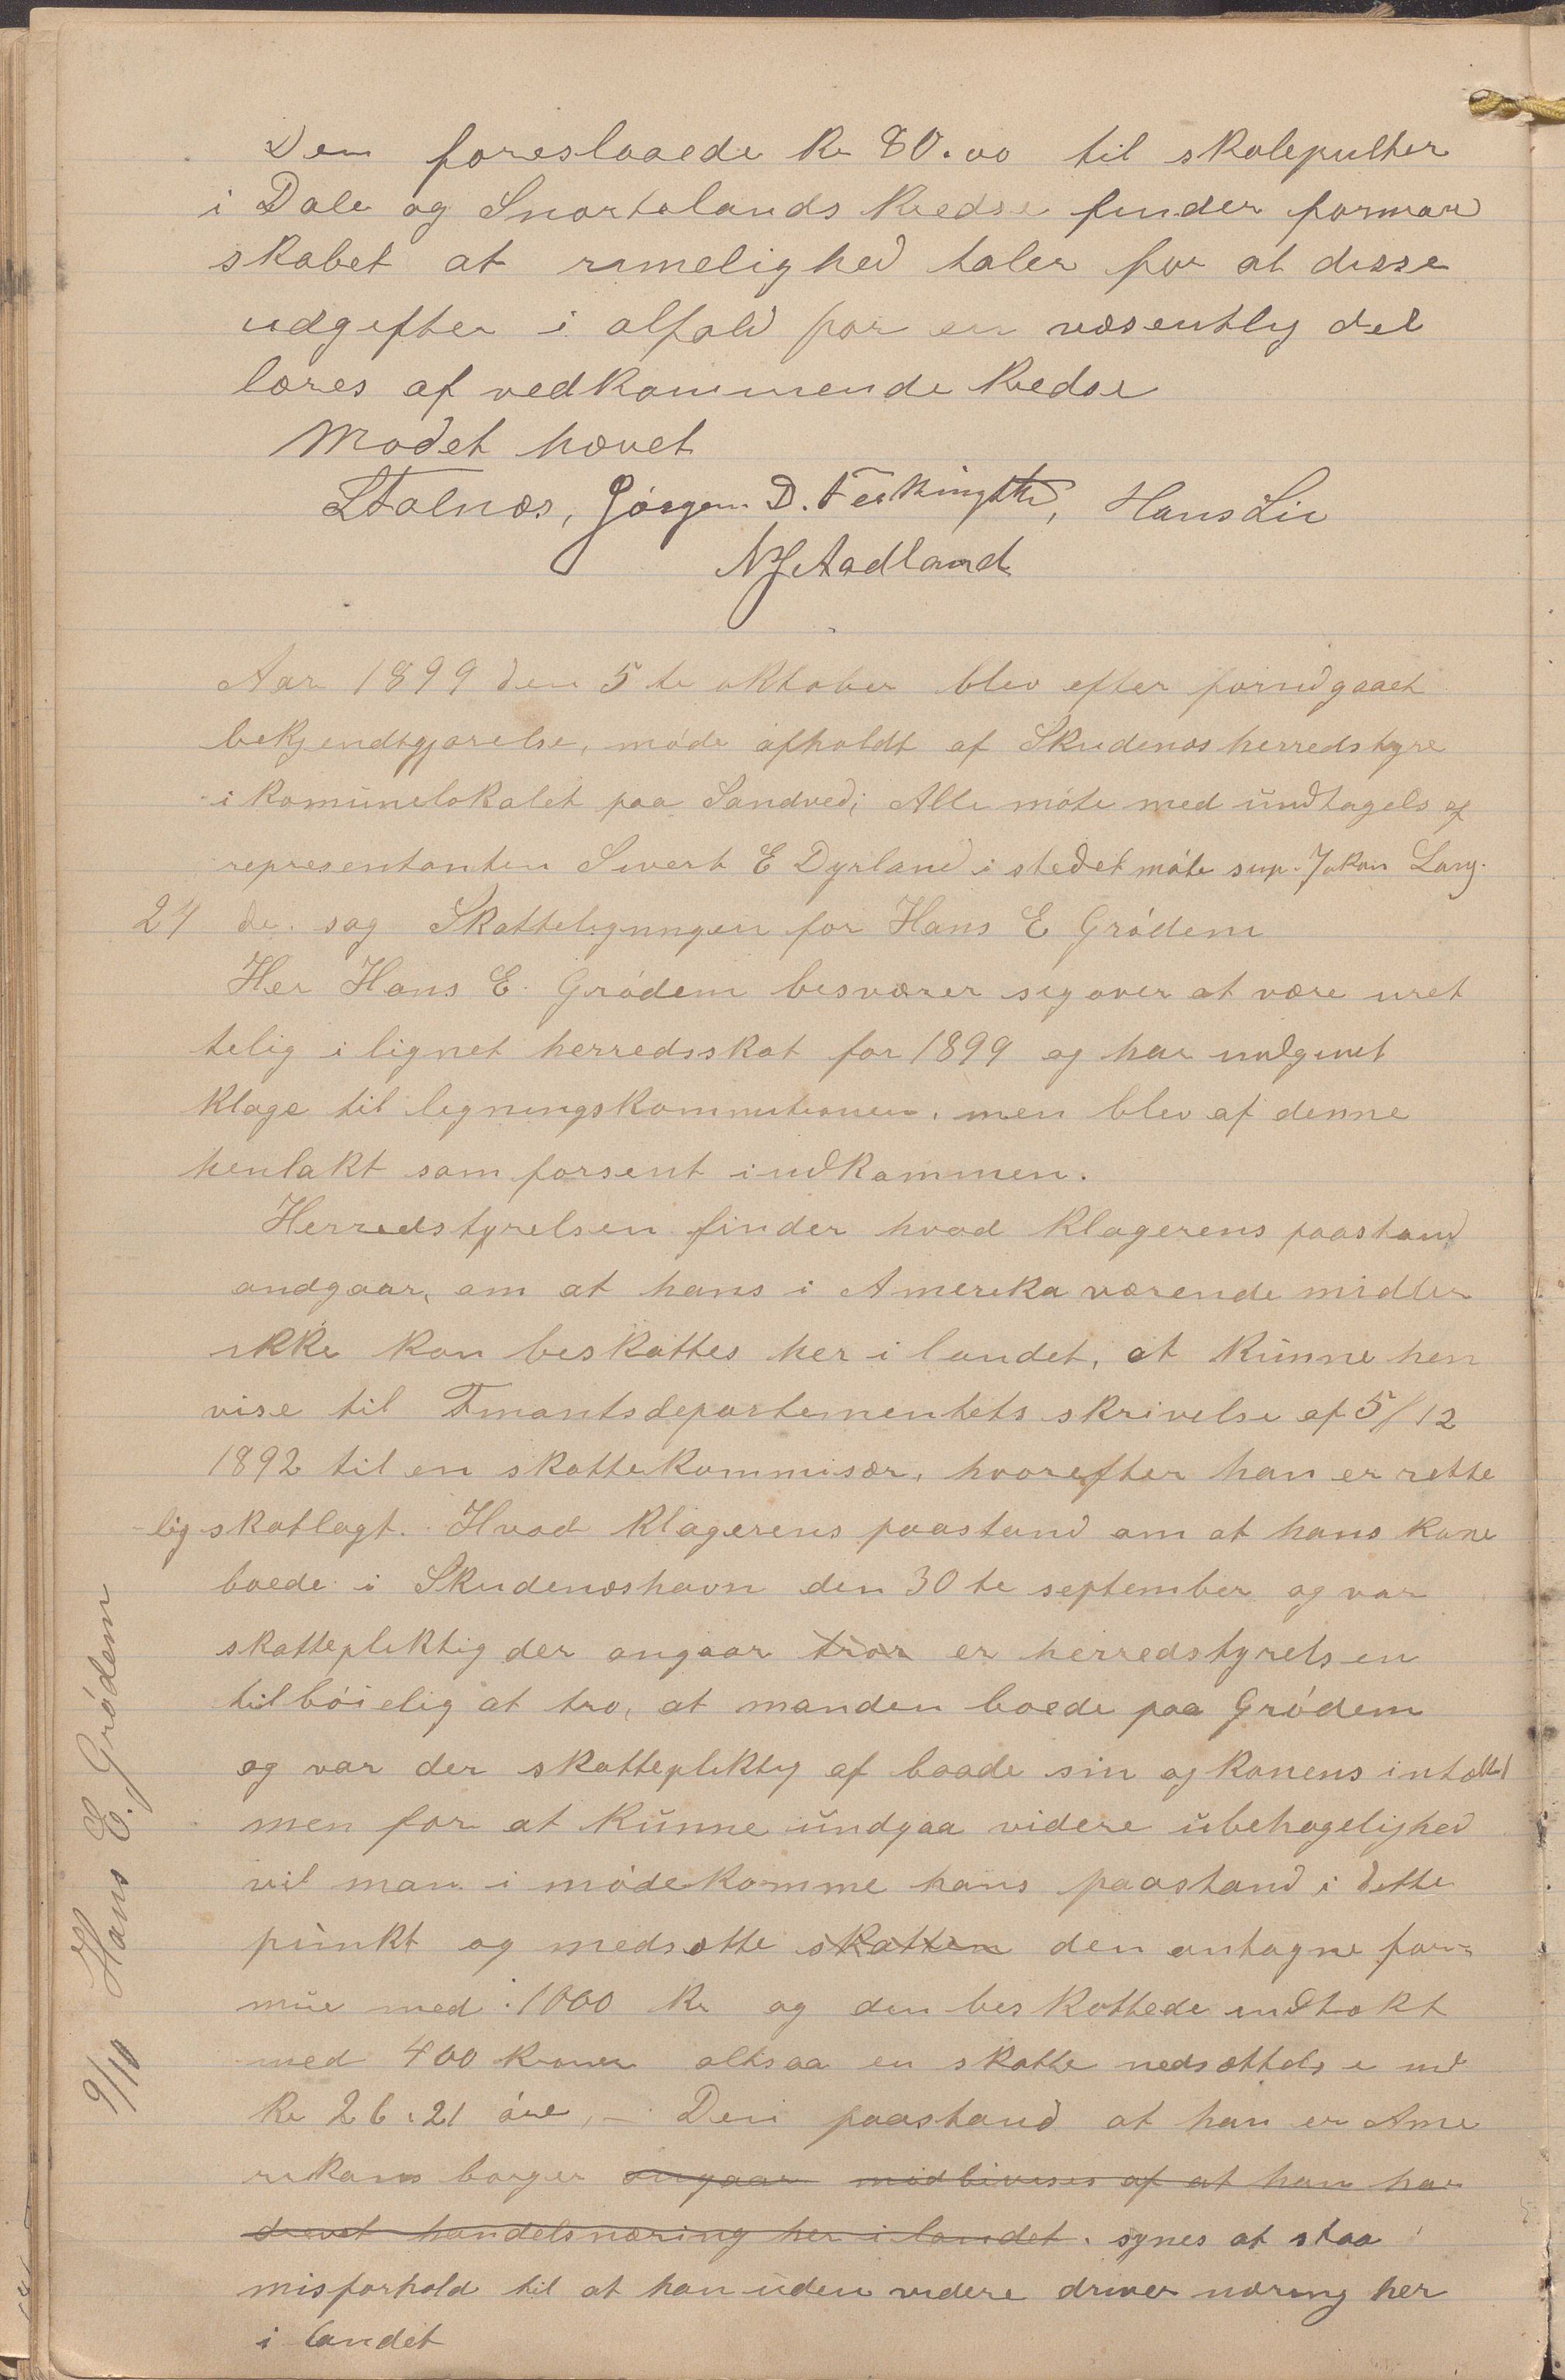 Den foreslaaede Kr 80.00 til skolepulter
i Dale og Snortelands Kredse finder forman
skabet at rimelighed taler for at disse
udgifter i alfald for en væsentlig del
bæres af vedkommende Kredse
Mødet hævet
Stalnæs, Jørgen D. Ferkingsta, Hans Lie
NJ Aadland
Aar 1899 den 5te oktober blev efter forudgaaet
bekjendtgjørelse, møde afholdt af Skudenæs herredstyre
i Komunelokalet paa Sandved; Alle møte med undtagels af
representanten Sivert E Dyrland i stedet møte sup. Jakan Lang.
24 de. sag Skatteligningen for Hans E Grødem
Her Hans E. Grødem besværer sig over at være uret
telig i lignet herredsskat for 1899 og har indgivet
Klage til ligningskommitionen, men blev af denne
henlakt som forsent indkommen.
Herredstyrelsen finder hvad Klagerens paastand
andgaar, om at hans i Amerika værende midler
ikke kan beskattes her i landet, at Kunne hen
vise til Finantsdepartementets skrivelse af 5/12
1892 til en skattekommisær, hvorefter han er rette
lig skatlagt. Hvad Klagerens paastand om at hans Kone
boede i Skudenæshavn den 30te september og var
skattepliktig der angaar tror er herredstyrelsen
tilbøielig at tro, at manden boede paa Grødem
og var der skattepliktig af baade sin og konens intækt
men for at Kunne undgaa videre ubehagelighed
vil man i møde komme hans paastand i dette
punkt og nedsætte skatten den antagne for-
mue med 1000 Kr og den beskattede indtækt
med 400 Kroner altsaa en skatte nedsættelse ind
Kr 26.21 øre, – Den paastand at han er Ame
rikans borger angaar modbivises af at han har
drevet handelsnæring her i landet. synes at staa i
misforhold til at han uden videre driver næring her
i landet
9/10 Hans E. Grødem